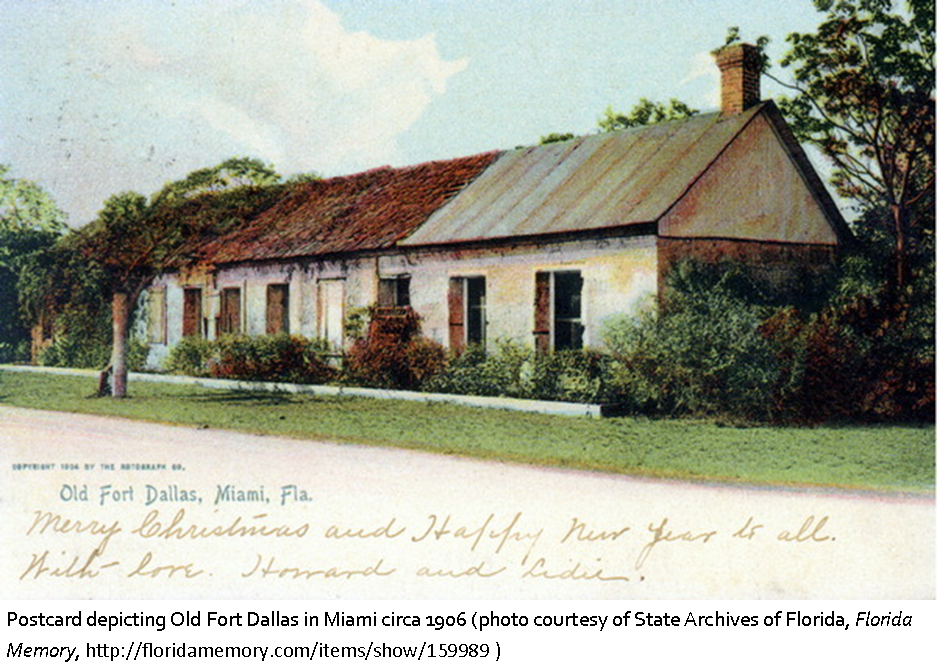 COPYRIGHT 1904 BY THE ROTOGRAPH CO.
Old Fort Dallas, Miami, Fla.
Merry Christmas and Happy New Year to all.
With love. Howard and Lidie.
Postcard depicting Old Fort Dallas in Miami circa 1906 (photo courtesy of State Archives of Florida, Florida
Memory, http://floridamemory.com/items/show/159989 )